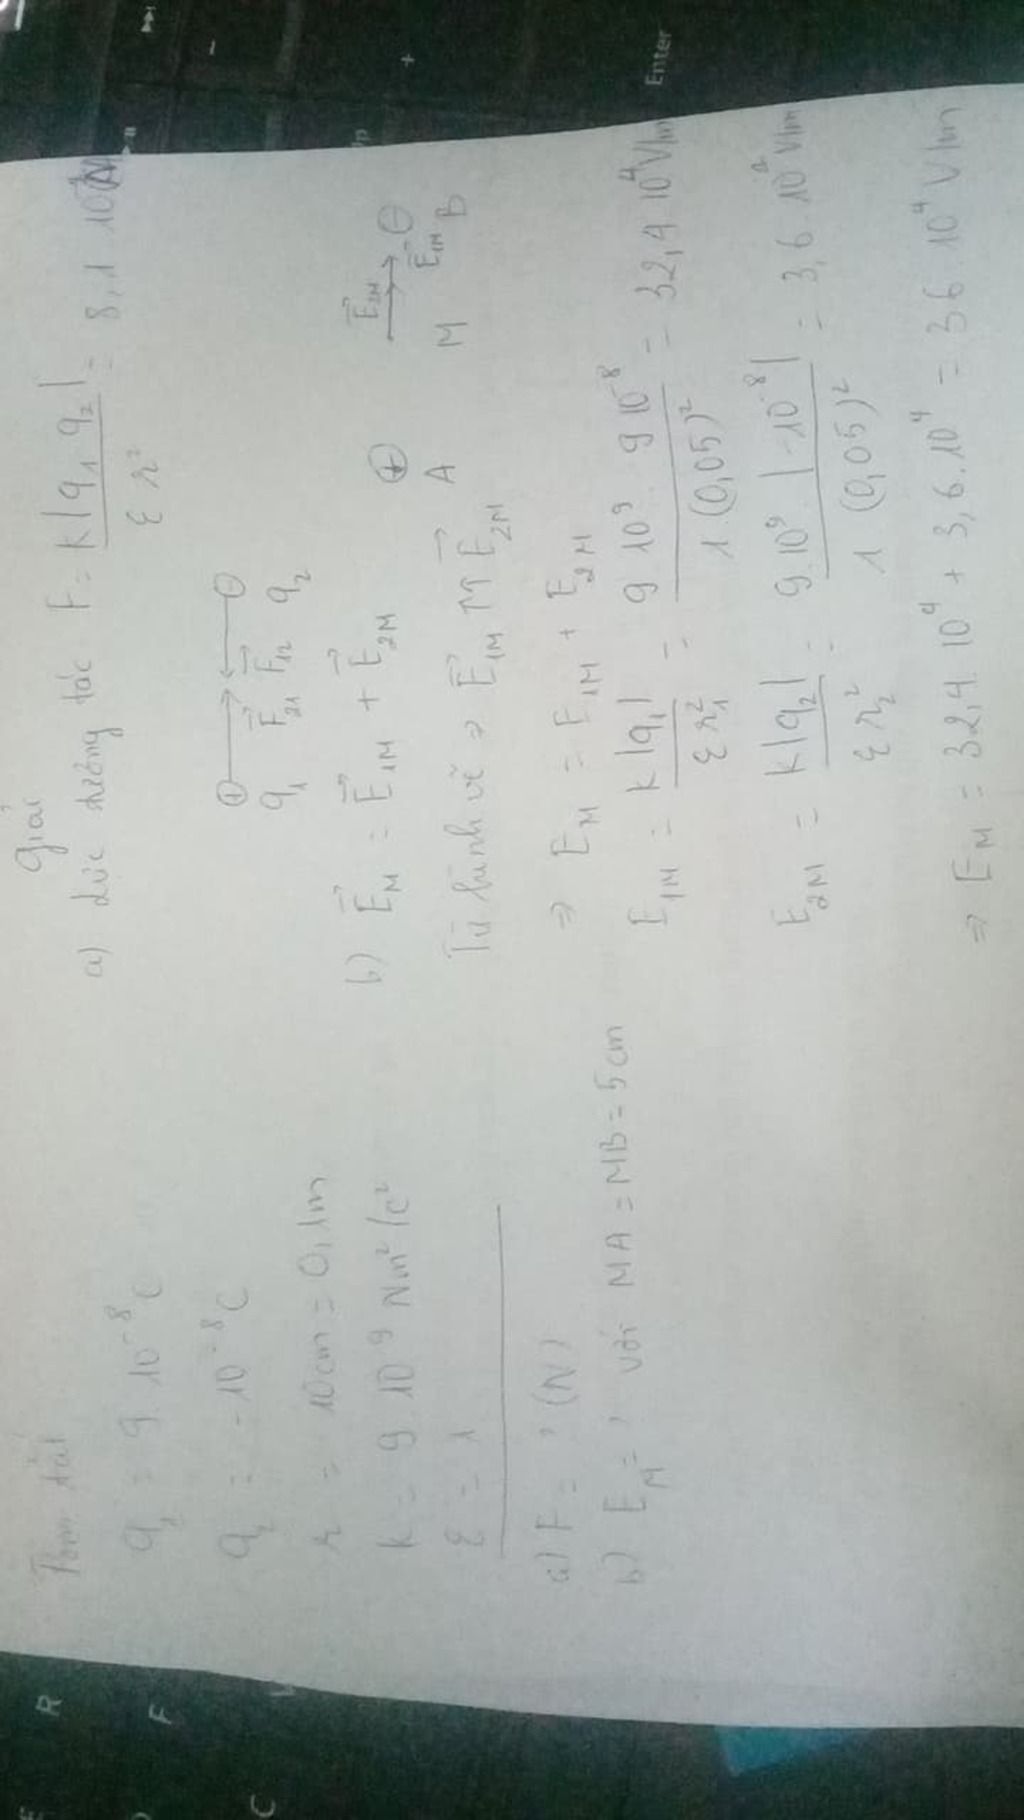 Tóm tắt
q₁ = 9.10⁻⁸C
q₂ = -10⁻⁸C
r = 10cm = 0,1m
k = 9.10⁹ Nm²/C²
ε = 1
a) F = ? (N)
b) E_M = ? với MA = MB = 5cm
Giải
a) Lực tương tác F = k|q₁.q₂| / ε r² = 8,1.10
⊕ ⊖
q₁ F₂₁ F₁₂ q₂
b) E_M = E₁M + E₂M
E₂M
⊕ ⊖
E₁M
A M B
Từ hình vẽ ⇒ E₁M ↑↑ E₂M
⇒ E_M = E₁M + E₂M
E₁M = k|q₁| / ε r₁² = 9.10⁹.9.10⁻⁸ / 1.(0,05)² = 32,4.10⁴V/m
E₂M = k|q₂| / ε r₂² = 9.10⁹.|-10⁻⁸| / 1.(0,05)² = 3,6.10 V/m
⇒ E_M = 32,4.10⁴ + 3,6.10⁴ = 36.10⁴ V/m
Enter
R
F
C